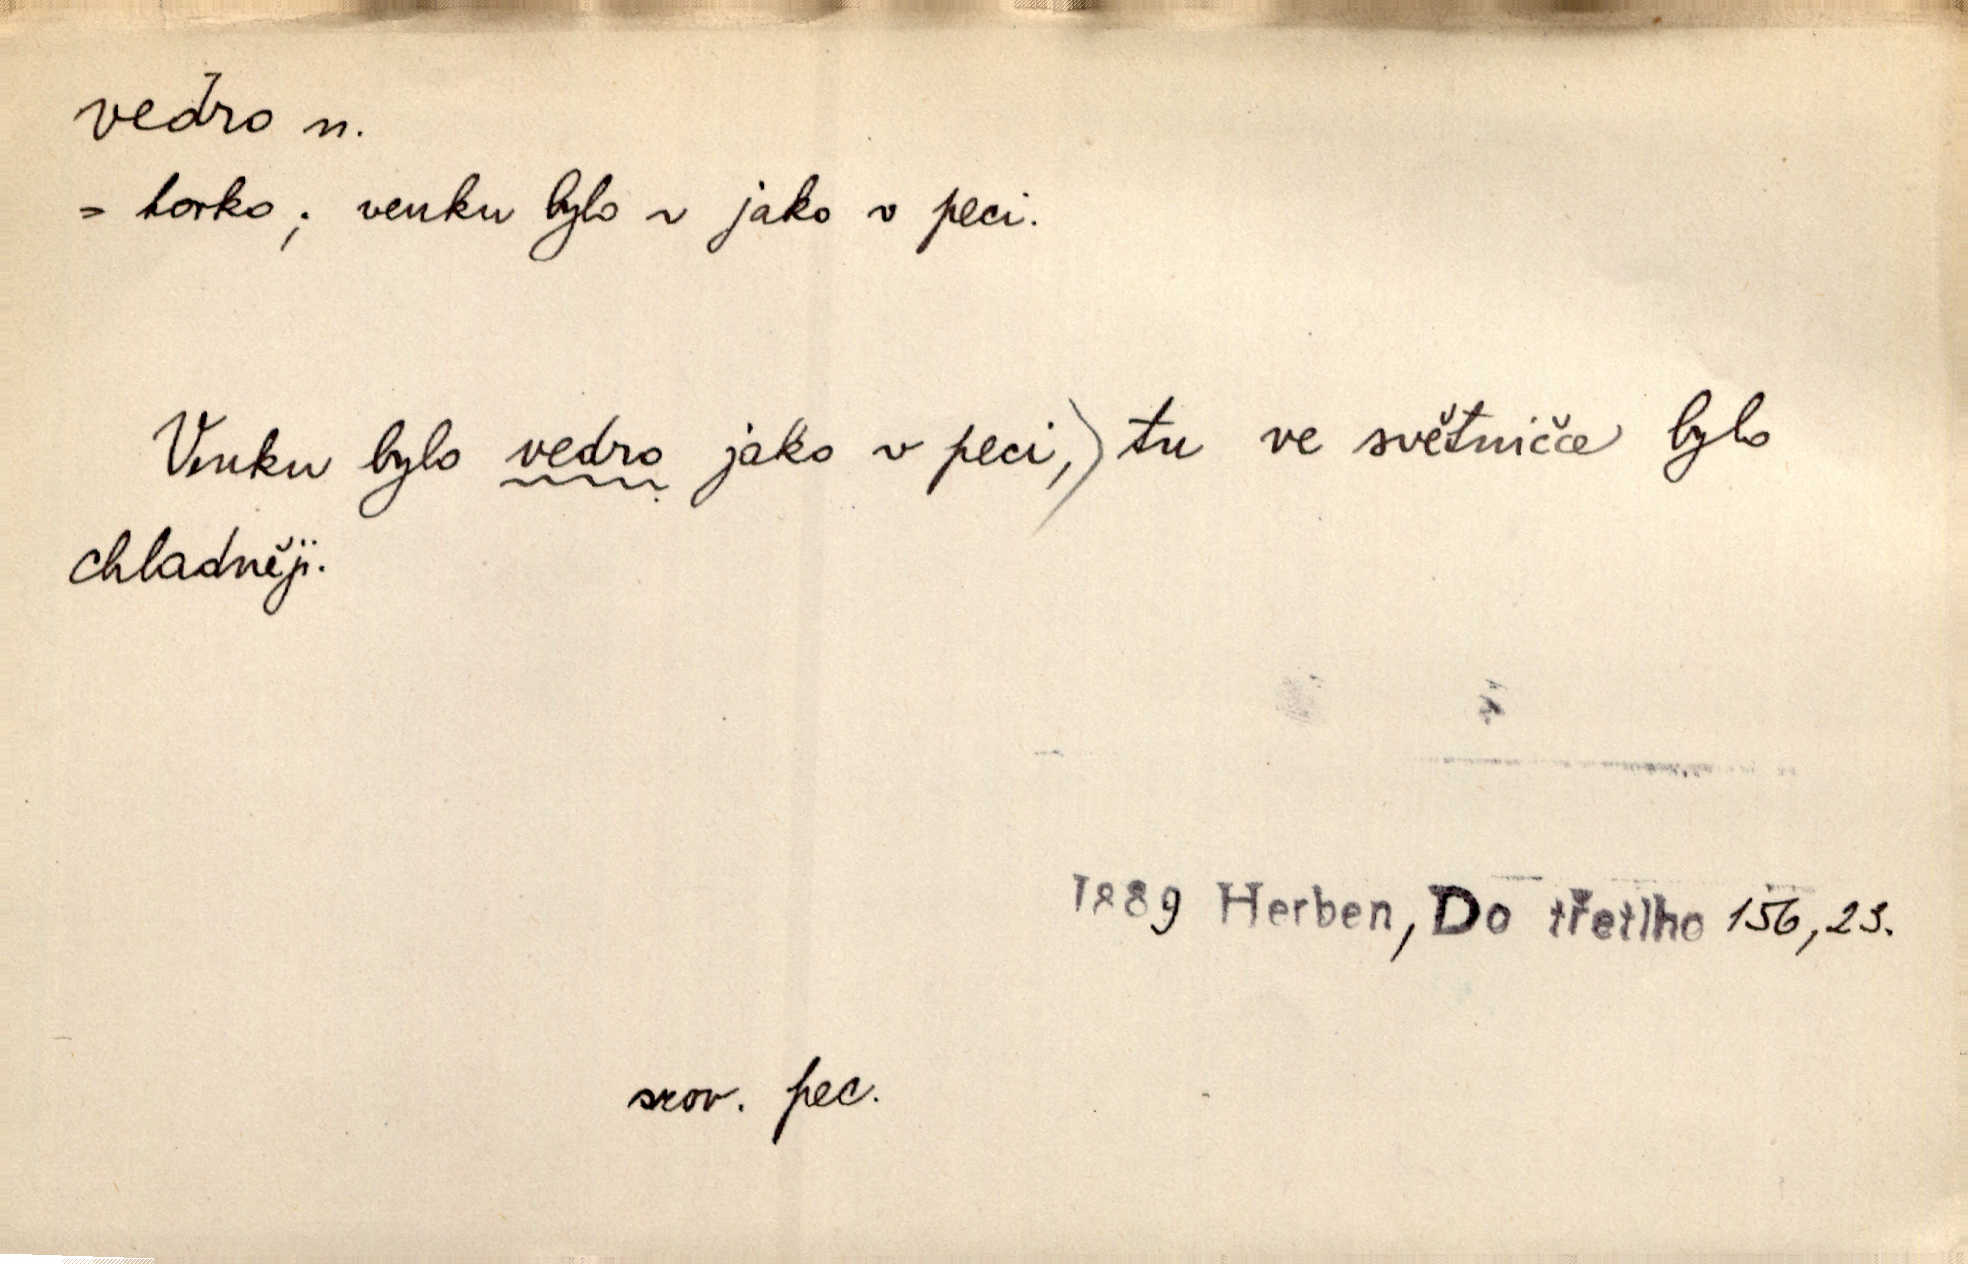 vedro n.
= horko; venku bylo ~ jako v peci.
Venku bylo vedro jako v peci,) tu ve světničce bylo
chladněji.
1889 Herben, Do třetího 156, 23.
srov. pec.